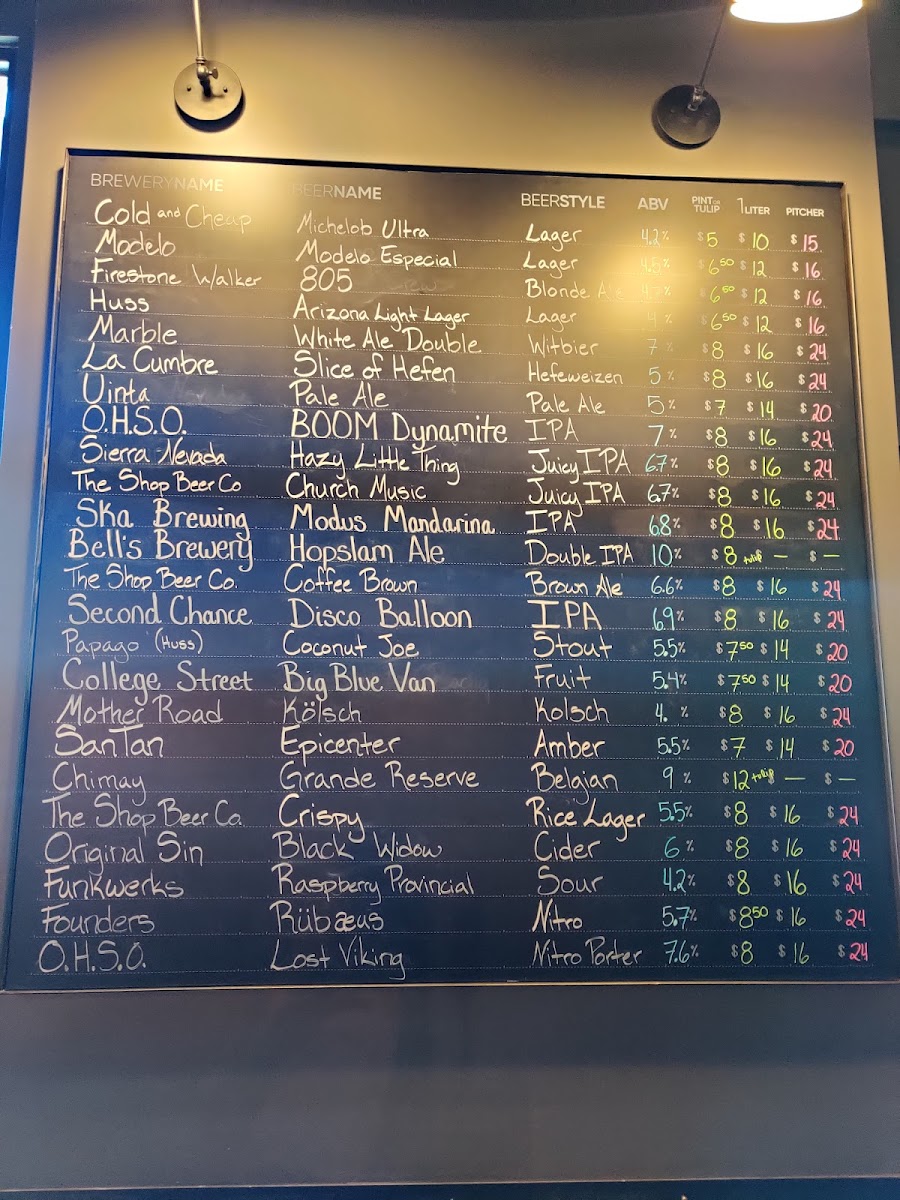 BREWERYNAME BEERNAME BEERSTYLE ABV PINT OR TULIP 1 LITER PITCHER
Cold and Cheap Michelob Ultra Lager 4.2% $5 $10 $15
Modelo Modelo Especial Lager 4.5% $6.50 $12 $16
Firestone Walker 805 Blonde Ale $6.50 $12 $16
Huss Arizona Light Lager Lager 4% $6.50 $12 $16
Marble White Ale Double Witbier 7% $8 $16 $24
La Cumbre Slice of Hefen Hefeweizen 5% $8 $16 $24
Uinta Pale Ale Pale Ale 5% $7 $14 $20
O.H.S.O. BOOM Dynamite IPA 7% $8 $16 $24
Sierra Nevada Hazy Little Thing Juicy IPA 6.7% $8 $16 $24
The Shop Beer Co Church Music Juicy IPA 6.7% $8 $16 $24
Ska Brewing Modus Mandarina IPA 6.8% $8 $16 $24
Bell's Brewery Hopslam Ale Double IPA 10% $8 tulip — $ —
The Shop Beer Co. Coffee Brown Brown Ale 6.6% $8 $16 $24
Second Chance Disco Balloon IPA 6.9% $8 $16 $24
Papago (Huss) Coconut Joe Stout 5.5% $7.50 $14 $20
College Street Big Blue Van Fruit 5.4% $7.50 $14 $20
Mother Road Kölsch Kolsch 4. % $8 $16 $24
SanTan Epicenter Amber 5.5% $7 $14 $20
Chimay Grande Reserve Belgian 9% $12 tulip — $ —
The Shop Beer Co. Crispy Rice Lager 5.5% $8 $16 $24
Original Sin Black Widow Cider 6% $8 $16 $24
Funkwerks Raspberry Provincial Sour 4.2% $8 $16 $24
Founders Rübæus Nitro 5.7% $8.50 $16 $24
O.H.S.O. Lost Viking Nitro Porter 7.6% $8 $16 $24